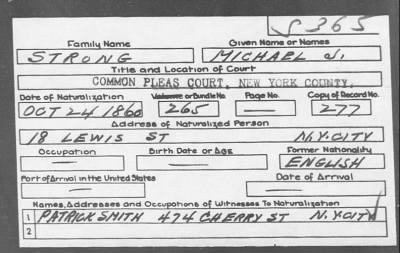 S 365
Family Name Given Name or Names
STRONG MICHAEL J.
Title and Location of Court
COMMON PLEAS COURT, NEW YORK COUNTY.
Date of Naturalization Volume or Bundle No. Page No. Copy of Record No.
OCT 24 1860 265 — 277
Address of Naturalized Person
18 LEWIS ST N.Y.CITY
Occupation Birth Date or Age Former Nationality
— — ENGLISH
Port of Arrival in the United States Date of Arrival
— —
Names, Addresses and Occupations of Witnesses To Naturalization
1 PATRICK SMITH 474 CHERRY ST N.Y.CITY
2